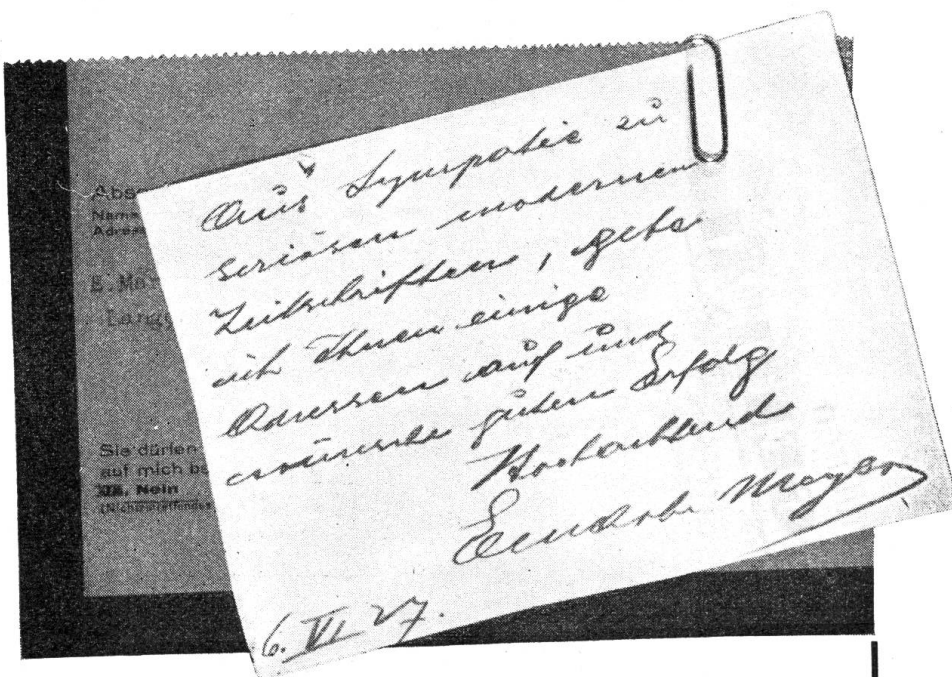 Abs
Name
Adres
E.
Lang
Sie dürfen
auf mich b
Nein
Aus Sympatie zu
seriösen modernen
Zeitschriften, gebe
ich Ihnen einige
Adressen auf und
wünsche guten Erfolg
Hochachtend
Meyer
6. VI 27.